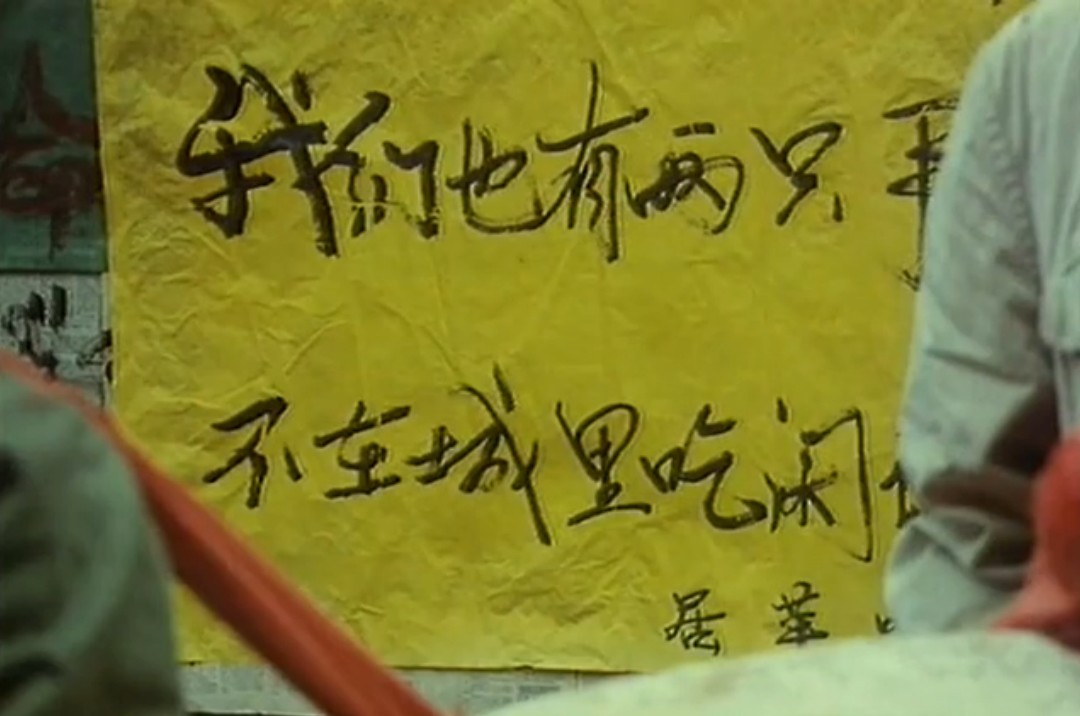 我们也有两只
不在城里吃闲
居